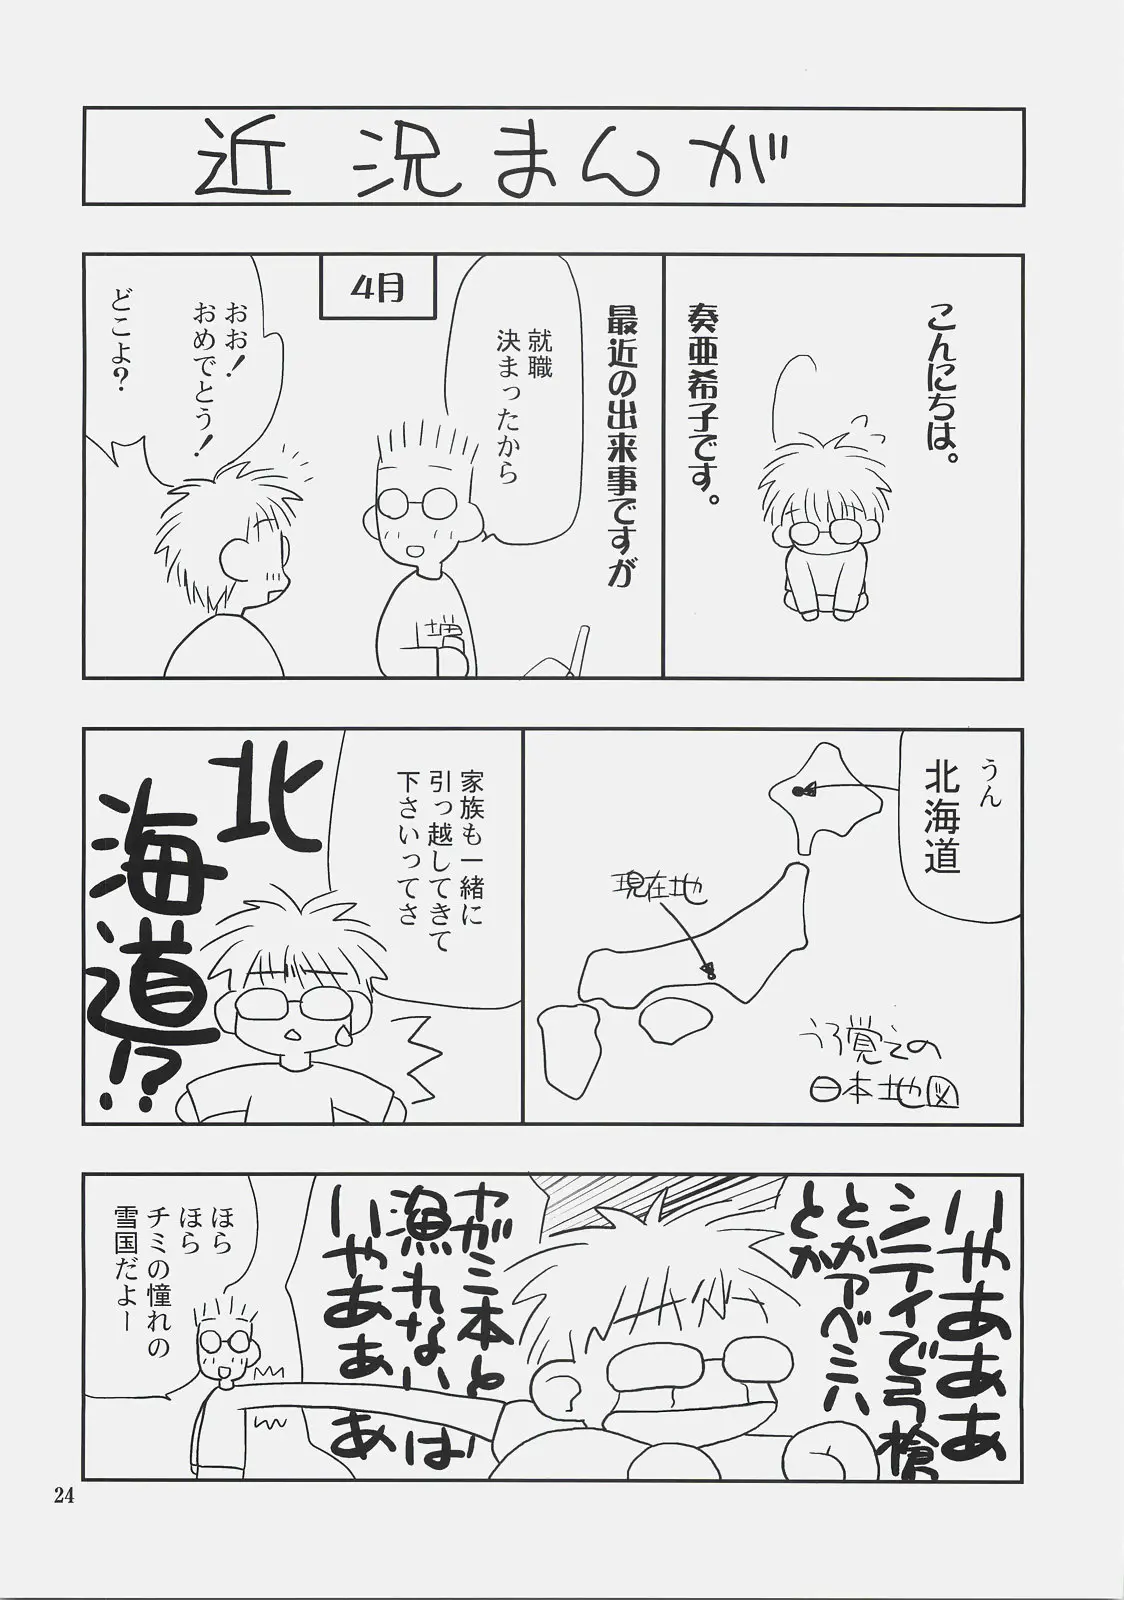 近況まんが
こんにちは。
奏亜希子です。
最近の出来事ですが
4月
就職
決まったから
おお！
おめでとう！
どこよ？
うん
北海道
現在地
うろ覚えの
日本地図
家族も一緒に
引っ越してきて
下さいってさ
北
海道!?
いやあああ
シティで弓槍
とかアベミハ
とか
ヤガミ本と
漁れないは
いやああああ
ほら
ほら
チミの憧れの
雪国だよー
24